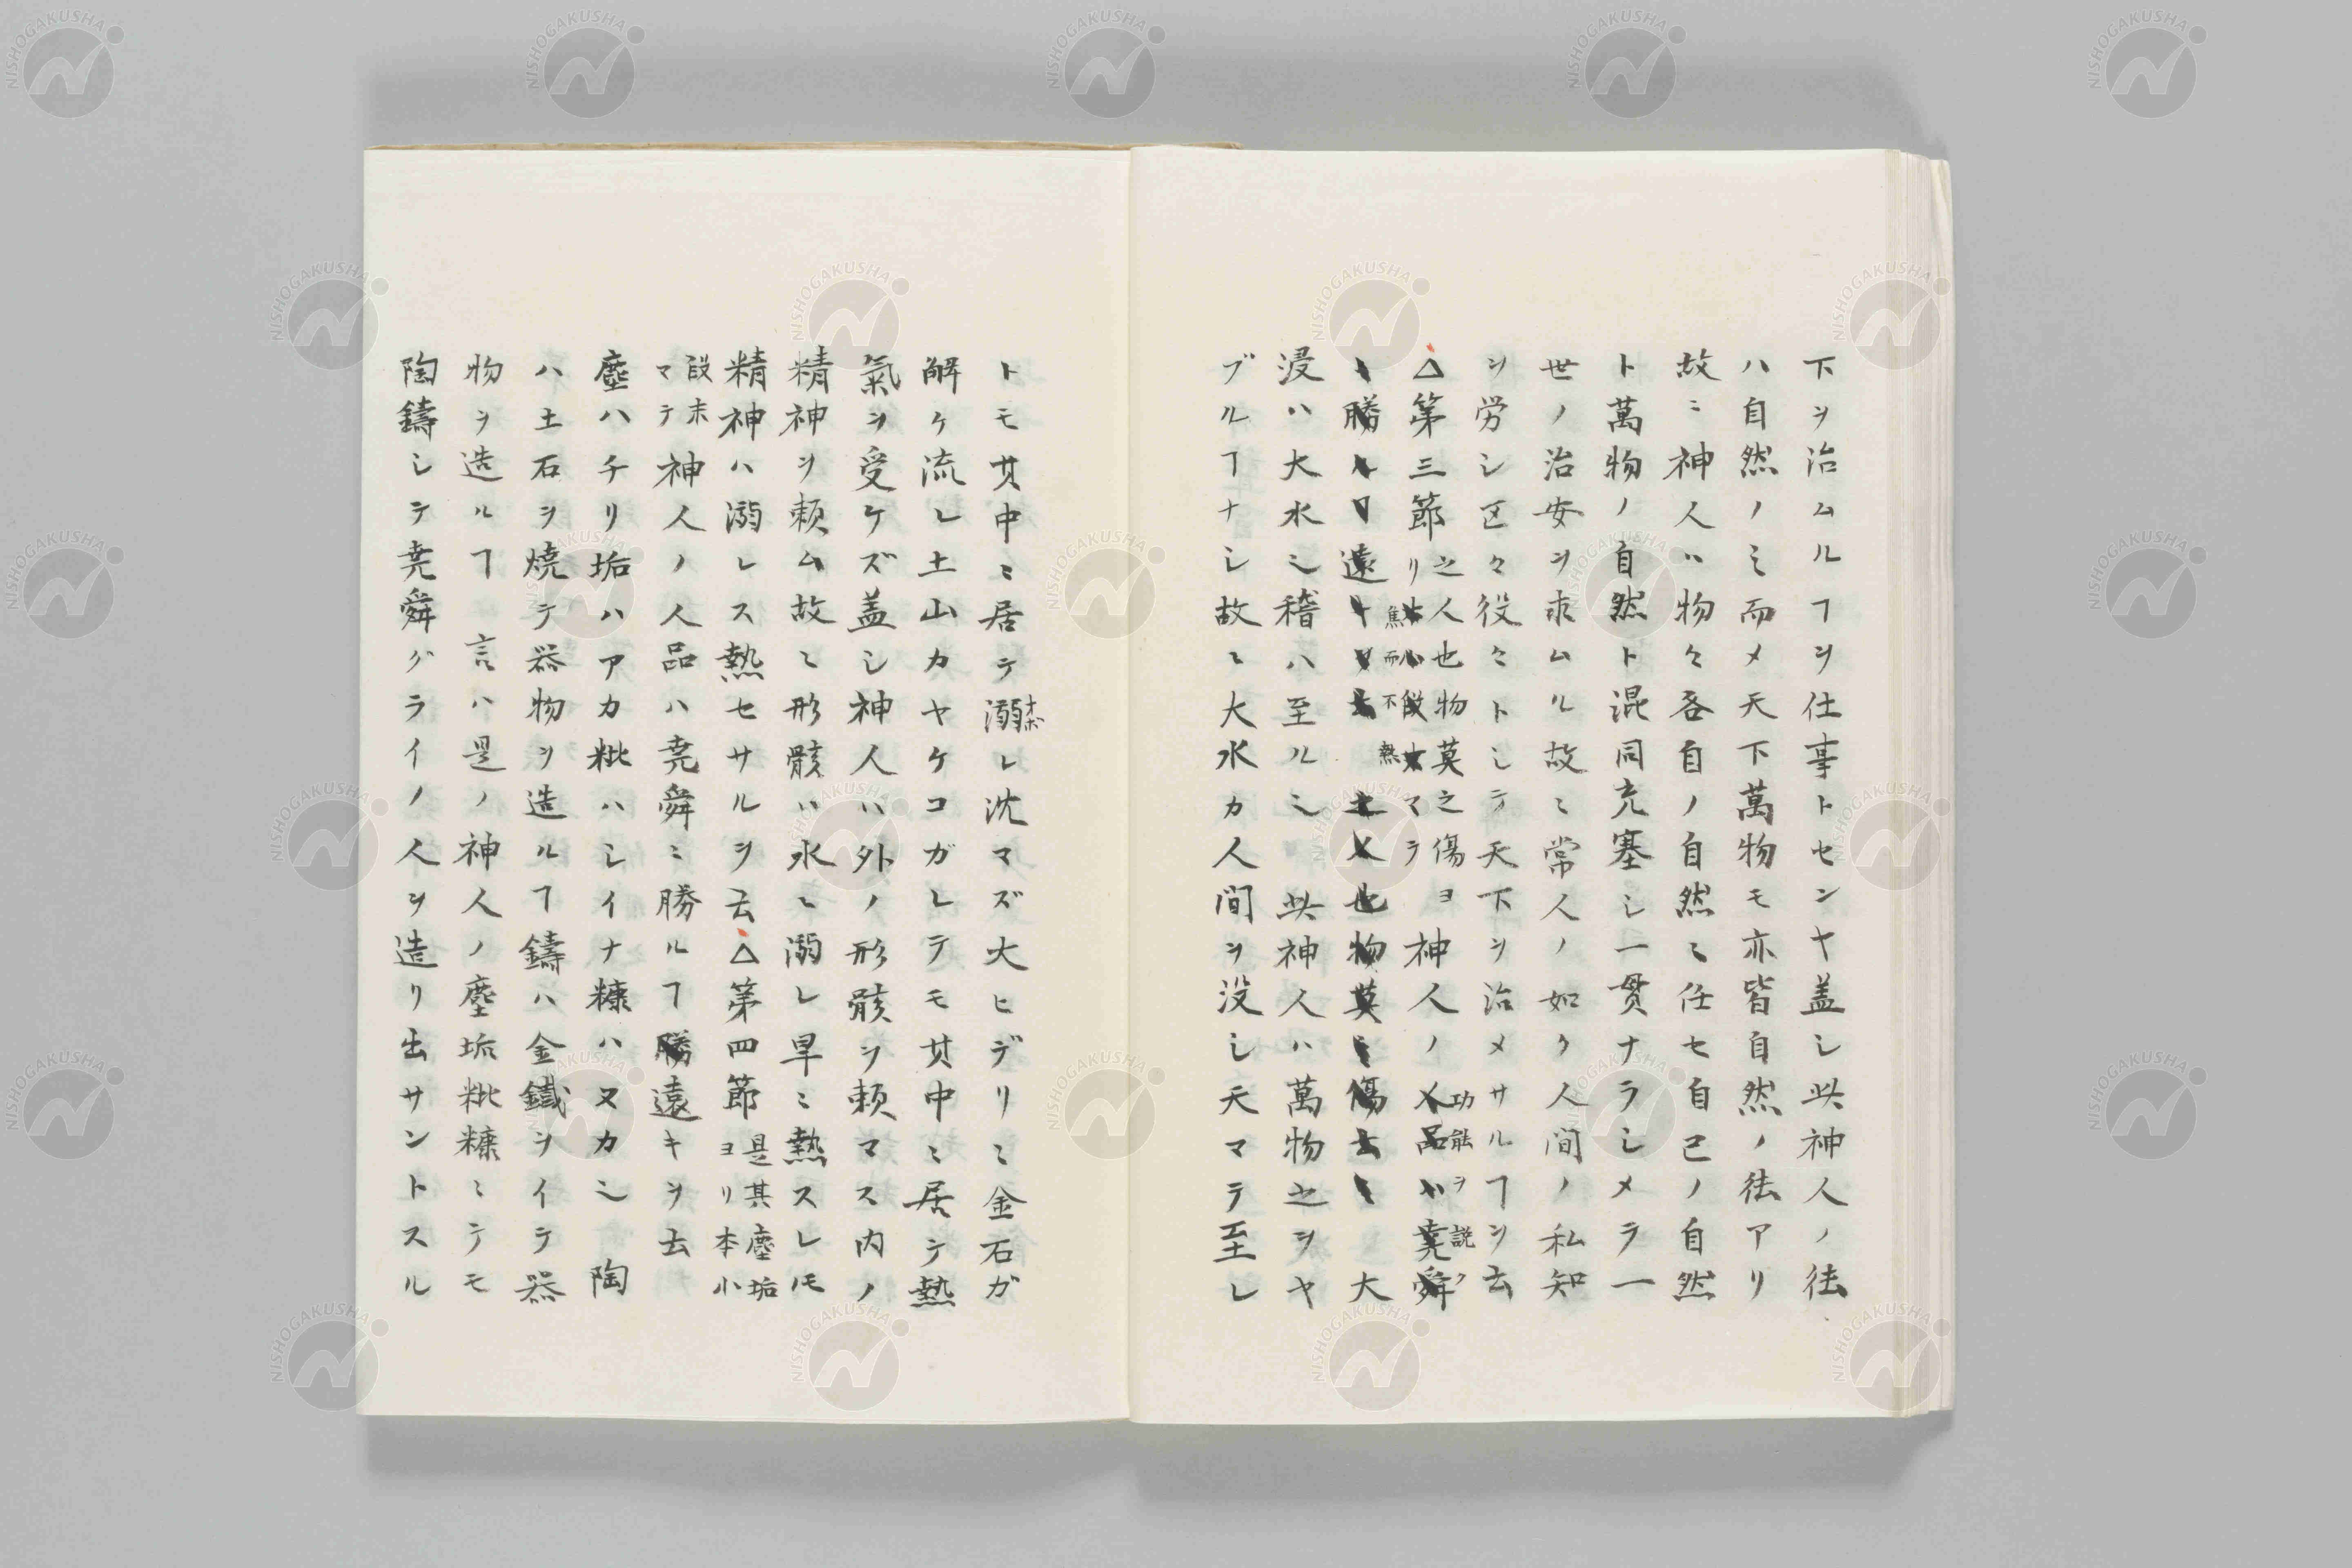 下ヲ治ムルヿヲ仕事トセンヤ盖シ此神人ノ徃
ハ自然ノミ而メ天下萬物モ亦皆自然ノ徃アリ
故ニ神人ハ物々各自ノ自然ニ任セ自己ノ自然
ト萬物ノ自然ト混同充塞シ一貫ナラシメテ一
世ノ治安ヲ求ムル故ニ常人ノ如ク人間ノ私知
ヲ労シ区々役々トシテ天下ヲ治メサルヿヲ云
△第三節之人也物莫之傷ヨリ焦而不熱マテ神人ノ功能ヲ説ク
大
浸ハ大水也稽ハ至ル也此神人ハ萬物之ヲヤ
ブルヿナシ故ニ大水カ人間ヲ没シ天マテ至レ
トモ其中ニ居テ溺オボレ沈マズ大ヒデリニ金石ガ
解ケ流レ土山カヤケコガレテモ其中ニ居テ熱
氣ヲ受ケズ盖シ神人ハ外ノ形骸ヲ頼マス内ノ
精神ヲ頼ム故ニ形骸ハ水ニ溺レ旱ニ熱スレ𪜈
精神ハ溺レス熱セサルヲ云△第四節是其塵垢ヨリ本小
段末マテ神人ノ人品ハ尭舜ニ勝ルヿ遠キヲ云
塵ハチリ垢ハアカ粃ハシイナ糠ハヌカ也陶
ハ土石ヲ燒テ器物ヲ造ルヿ鑄ハ金鐵ヲイテ器
物ヲ造ルヿ言ハ是ノ神人ノ塵垢粃糠ニテモ
陶鑄シテ尭舜グライノ人ヲ造リ出サントスル
NISHOGAKUSHA